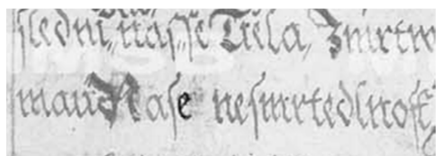 sledni, nas=se Tiela, Zmrtw
maucNase nesmrtedlnost